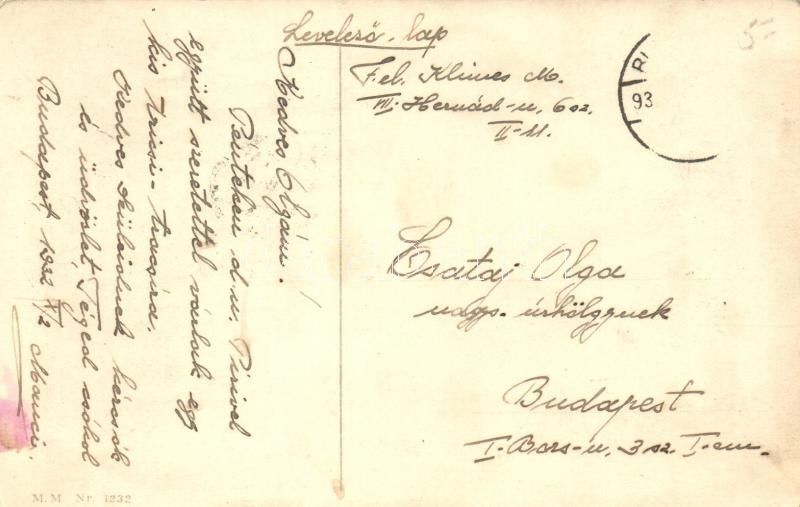 Levelező-lap
Fel. Klimes M.
VII. Hernád-u. 6 sz.
II-11.
Csataj Olga
nagys. úrhölgynek
Budapest
I. Bors-u. 3 sz. I-em.
Kedves Olgám!
Pénteken d.u. Pirivel
együtt szeretettel várlak egy
kis trécsi-tracsira.
Kedves Szüleidnek kézcsók
és üdvözlet, Téged csókol
Budapest, 1932 X/2 Manci.
RI
93
5-
M.M Nr. 1232